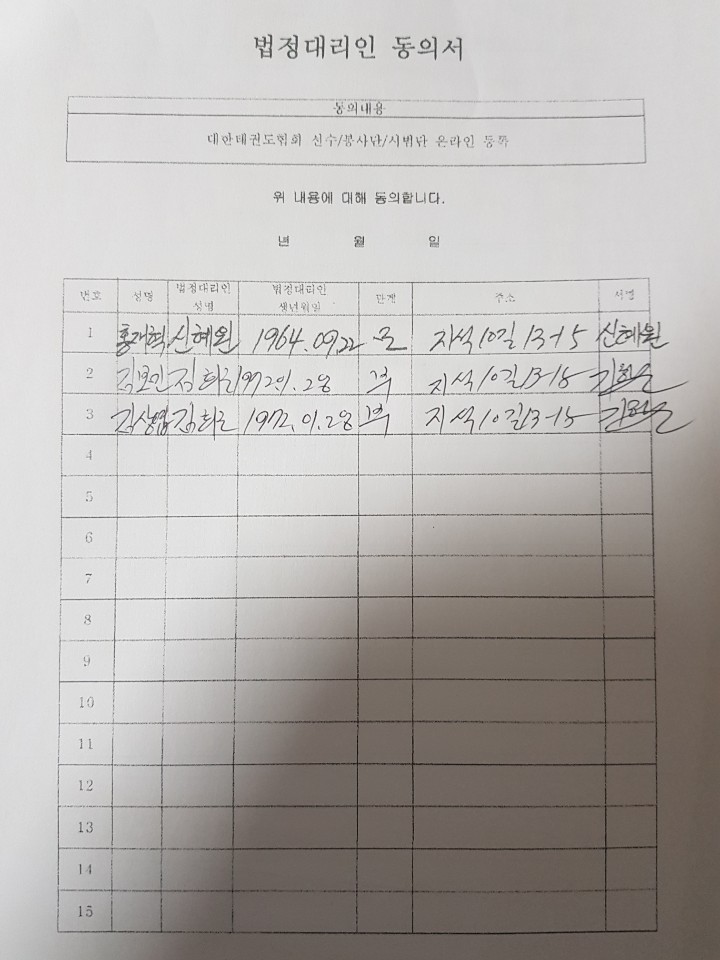 법정대리인 동의서
동의내용
대한태권도협회 선수/봉사단/시범단 온라인 등록
위 내용에 대해 동의합니다.
년 월 일
번호 성명 법정대리인 성명 법정대리인 생년월일 관계 주소 서명
1 홍재혁 신혜원 1964.09.22 모 지석10길 13-15 신혜원
2 1972.01.28 부 지석10길 13-15
3 1972.01.28 부 지석10길 13-15
4
5
6
7
8
9
10
11
12
13
14
15